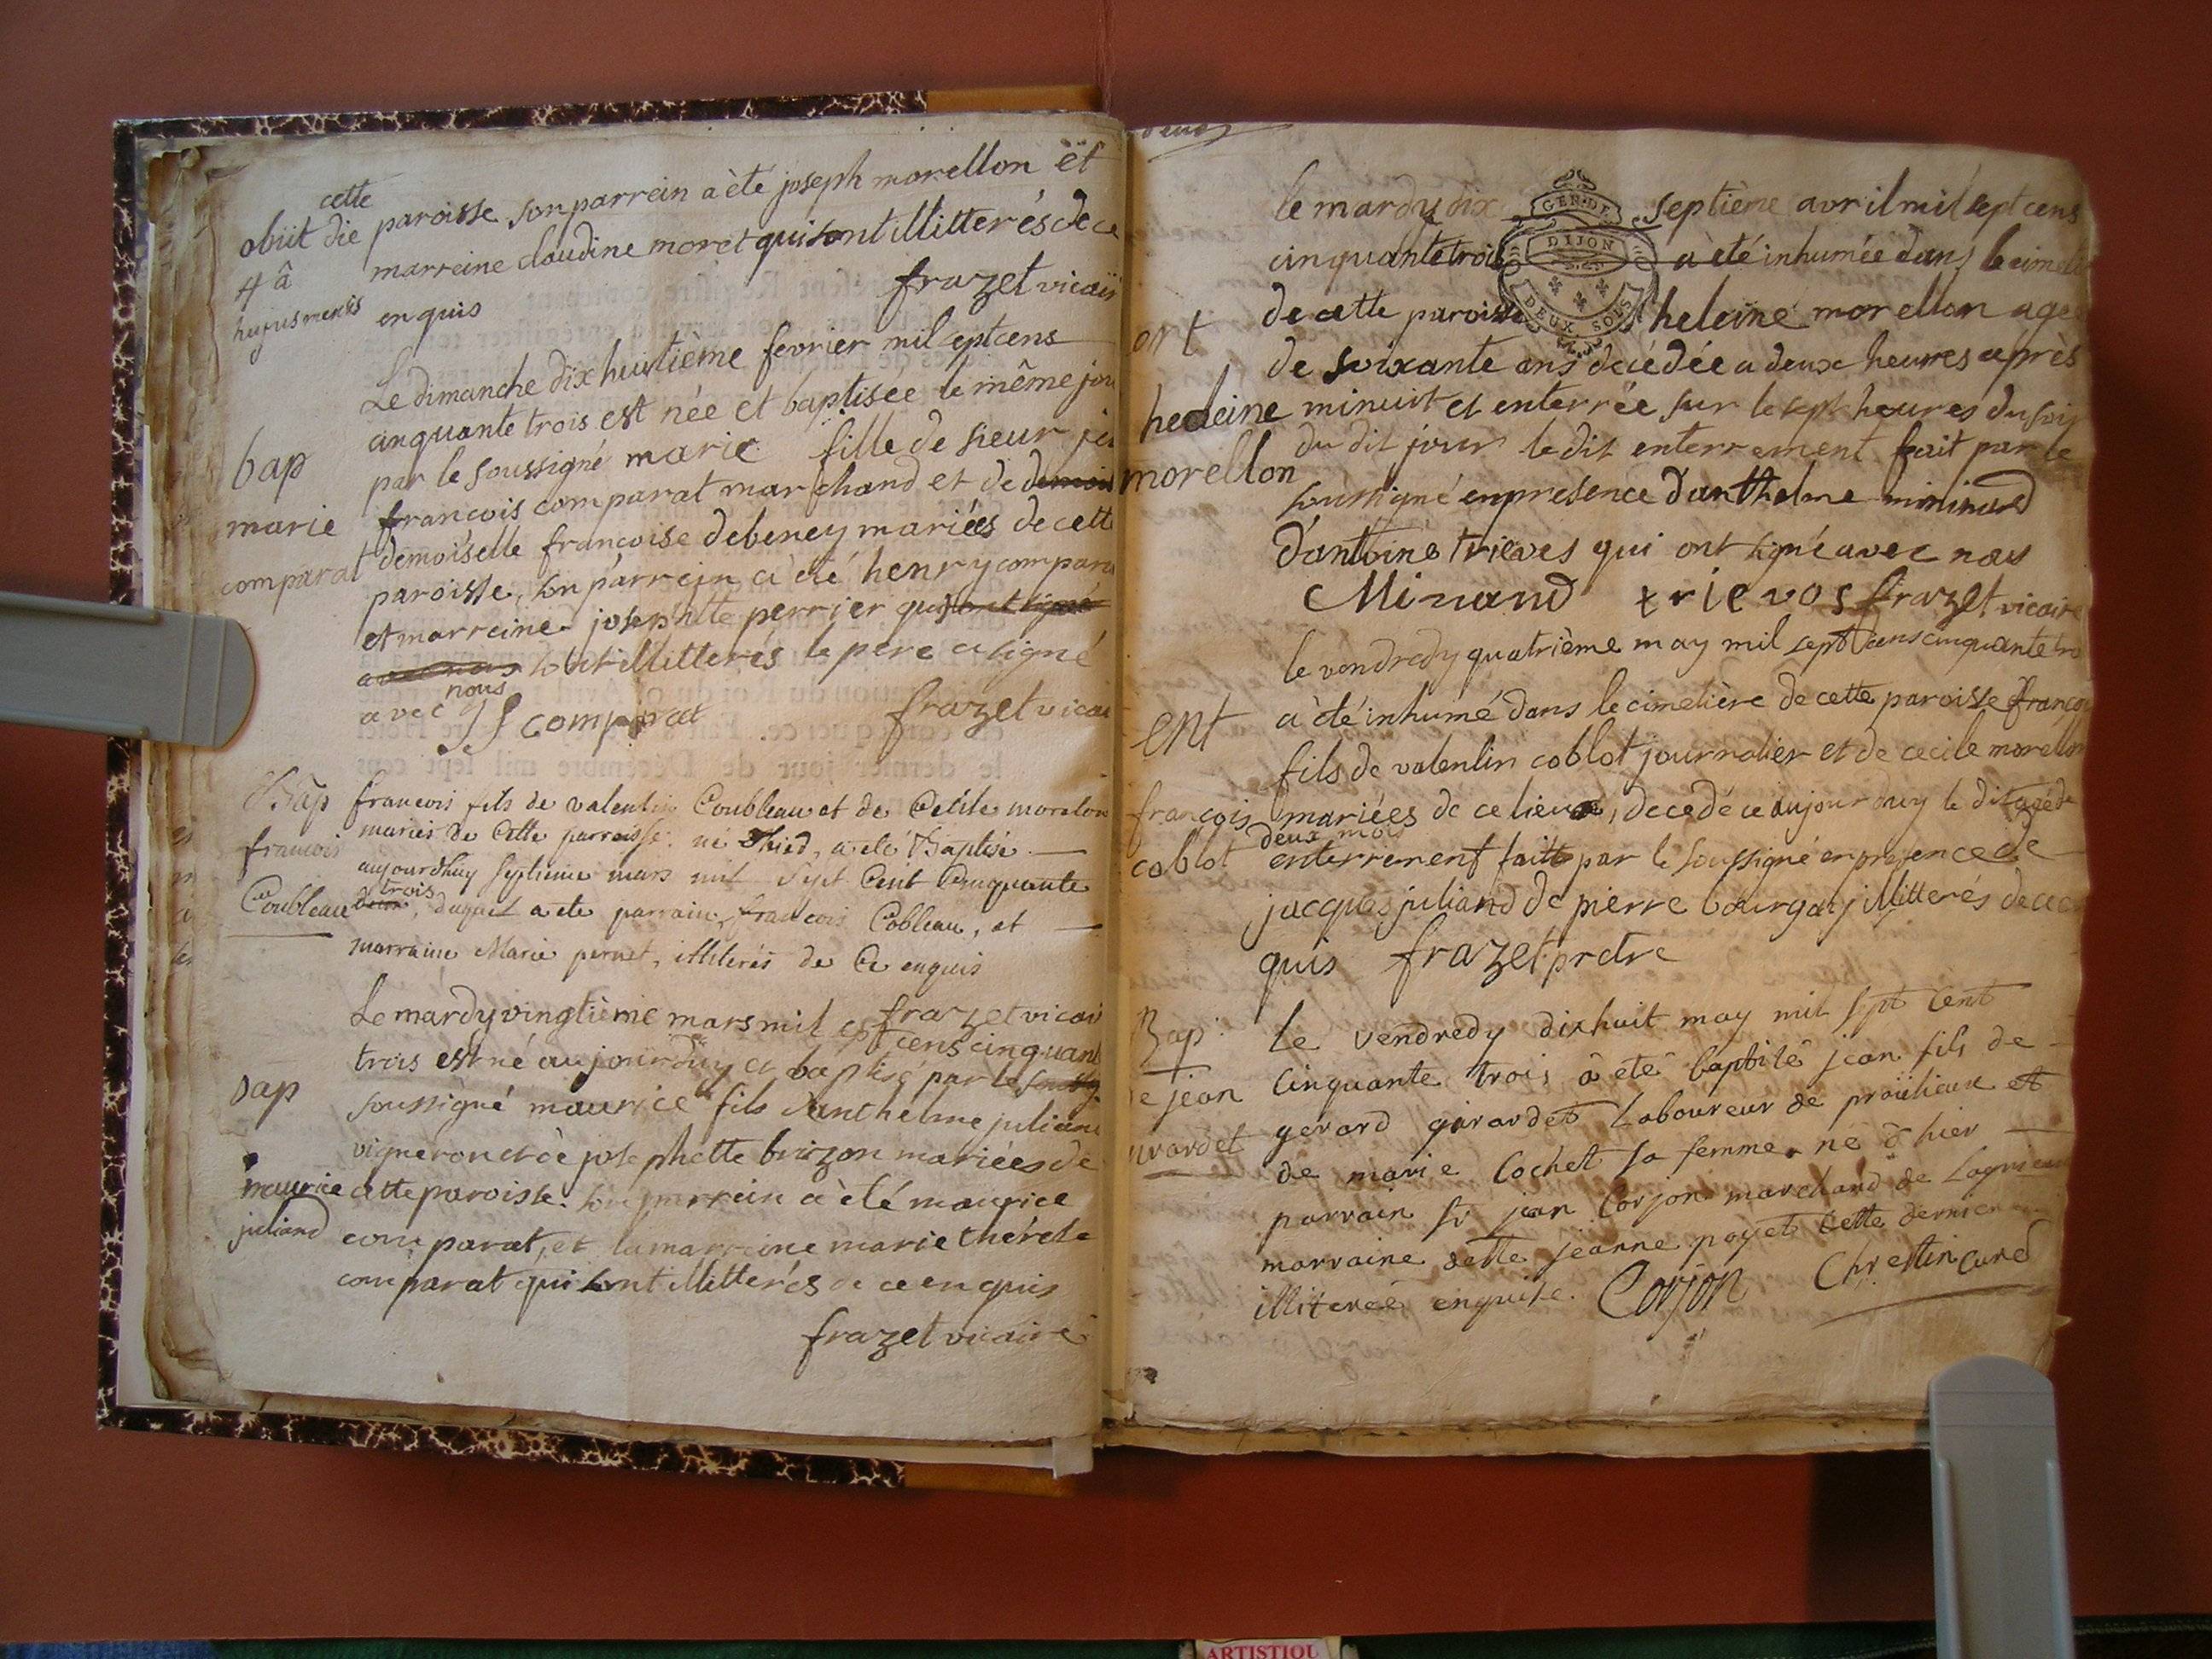 cette
obiit die
4 â
hujus mensis
paroisse son parrein a èté joseph morellon ët
marreine claudine moret qui sont illitterés de ce
enquis
frazet vicair
bap
marie
comparat
Le dimanche dix huitième fevrier mil sept cens
cinquante trois est née et baptisee le même jou
par le soussigné marie fille de sieur
francois comparat marchand et de demois
demoiselle francoise debeney mariées de cette
paroisse, son parrein a èté henry compara
et marreine josephtte perrier qui sont signé
avec nous sont illitterés le pere a signé
avec nous
JF comparat frazet vicai
Bap
francois
Coubleau
francois fils de valentin Coubleau et de Cecile morelon
mariés de Cette parroisse. né d'hied, a eté Baptisé
aujourdhuy septieme mars mil Sept Cent Cinquante
trois
deux, duquel a ete parrain, francois Cobleau, et
marraine Marie pernet, illiterés de Ce enquis
frazet vicair
bap
maurice
juliand
Le mardy vingtième mars mil sept cens cinquant
trois est né aujourduy et baptisé par le soussig
soussigné maurice fils d'anthelme julian
vigneron et de josephette brizon mariées de
cette paroisse. son parrein a èté maurice
comparat, et la marreine marie thérèse
comparat qui sont illitterés de ce enquis
frazet vicaire
GEN. DE
DIJON
DEUX SOLS
ent
heleine
morellon
le mardy dix septième avril mil sept cens
cinquante trois a èté inhumée dans le cimetie
de cette paroisse heleine morellon agee
de soixante ans decédée a deux heures après
minuit et enterrée sur le sept heures du soir
du dit jour le dit enterrement fait par le
soussigné en presence d'anthelme minimard
d'antoine trieves qui ont signé avec nous
Minand trievos frazet vicaire
ent
françois
coblot
le vendredy quatrième may mil sept cens cinquante tro
a èté inhumé dans le cimetière de cette paroisse françoi
fils de valentin coblot journalier et de cecile morellon
mariées de ce lieu, decedé ce aujourduy le dit agé de
deux mois
enterrement faitte par le soussigné en presence de
jacques juliand de pierre bourgay illitterés de ce en
quis frazet pretre
Bap.
e jean
irardet
Le vendredy dixhuit may mil sept Cent
Cinquante trois â eté baptisé jean fils de
gerard girardet Laboureur de proüilieux et
de marie Cochet sa femme. né d'hier
parrain sr jean Corjon marchand de Lagnieux
marraine delle jeanne payet Cette derniere
illiterée enquise. Corjon Chrestin Curé
ARTISTIQU